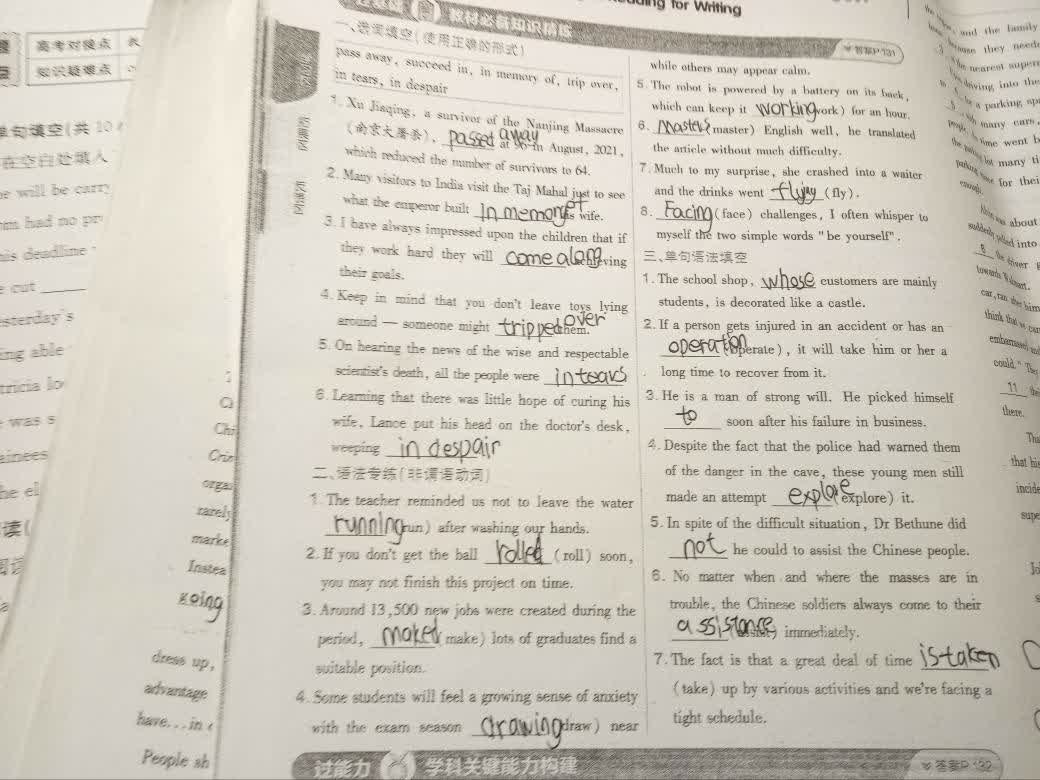 Reading for Writing
教材必备知识精练
答案P 131
一、选词填空(使用正确的形式)
pass away, succeed in, in memory of, trip over,
in tears, in despair
1. Xu Jiaqing, a survivor of the Nanjing Massacre
(南京大屠杀), passed away at 96 in August, 2021,
which reduced the number of survivors to 64.
2. Many visitors to India visit the Taj Mahal just to see
what the emperor built In memory of his wife.
3. I have always impressed upon the children that if
they work hard they will come along achieving
their goals.
4. Keep in mind that you don't leave toys lying
around — someone might tripped over them.
5. On hearing the news of the wise and respectable
scientist's death, all the people were in tears
6. Learning that there was little hope of curing his
wife, Lance put his head on the doctor's desk,
weeping in despair
二、语法专练(非谓语动词)
1. The teacher reminded us not to leave the water
running (run) after washing our hands.
2. If you don't get the ball rolled (roll) soon,
you may not finish this project on time.
3. Around 13,500 new jobs were created during the
period, maked (make) lots of graduates find a
suitable position.
4. Some students will feel a growing sense of anxiety
with the exam season drawing (draw) near
while others may appear calm.
5. The robot is powered by a battery on its back,
which can keep it working (work) for an hour.
6. Masters (master) English well, he translated
the article without much difficulty.
7. Much to my surprise, she crashed into a waiter
and the drinks went flying (fly).
8. Facing (face) challenges, I often whisper to
myself the two simple words "be yourself".
三、单句语法填空
1. The school shop, whose customers are mainly
students, is decorated like a castle.
2. If a person gets injured in an accident or has an
operation (operate), it will take him or her a
long time to recover from it.
3. He is a man of strong will. He picked himself
to soon after his failure in business.
4. Despite the fact that the police had warned them
of the danger in the cave, these young men still
made an attempt explore (explore) it.
5. In spite of the difficult situation, Dr Bethune did
not he could to assist the Chinese people.
6. No matter when and where the masses are in
trouble, the Chinese soldiers always come to their
assistance (assist) immediately.
7. The fact is that a great deal of time is taken
(take) up by various activities and we're facing a
tight schedule.
过能力 学科关键能力构建
答案P 132
高考对接点
知识疑难点
单句填空(共 10
在空白处填入
e will be carry
had no pr
his deadline
cut
esterday's
ing able
tricia lo
was s
ainees
he el
Chi
orga
rarely
marke
Instea
going
dress up,
advantage
have...in
People sh
and the family
because they neede
the nearest super
driving into the
a parking sp
many cars,
time went b
lot many ti
for thei
enough.
about
suddenly pulled into
8 the driver
towards
car, ran
think that
embarrassed and
could." They
11 the
there.
Tha
that his
incide
supe